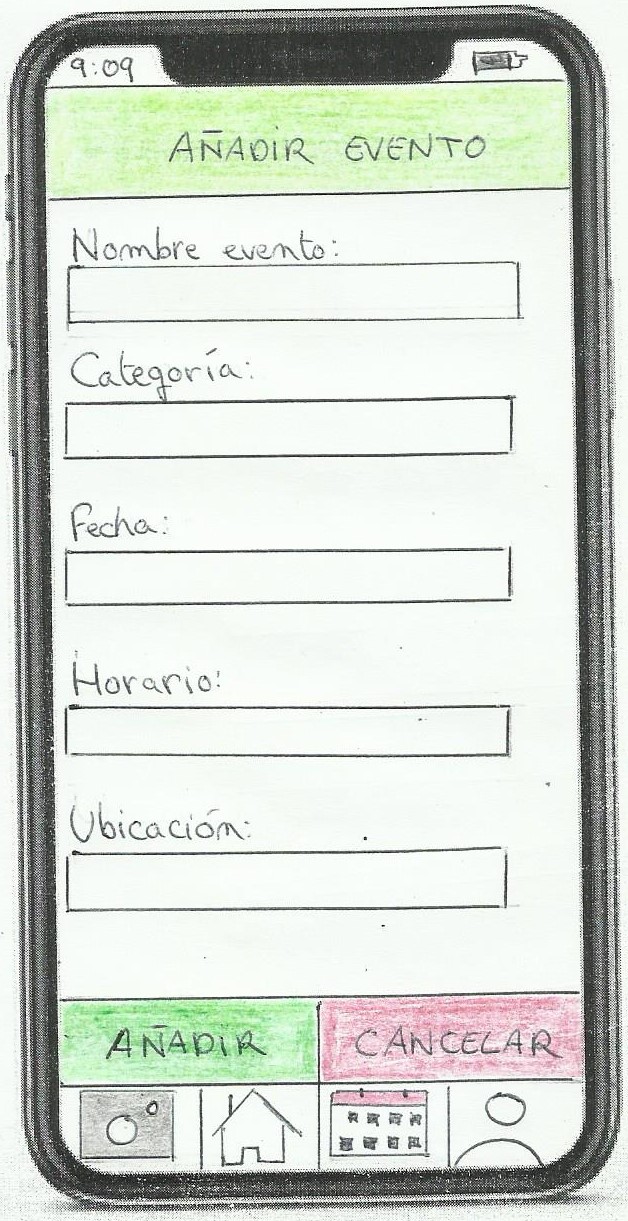 9:09
AÑADIR EVENTO
Nombre evento:
Categoría:
Fecha:
Horario:
Ubicación:
AÑADIR
CANCELAR